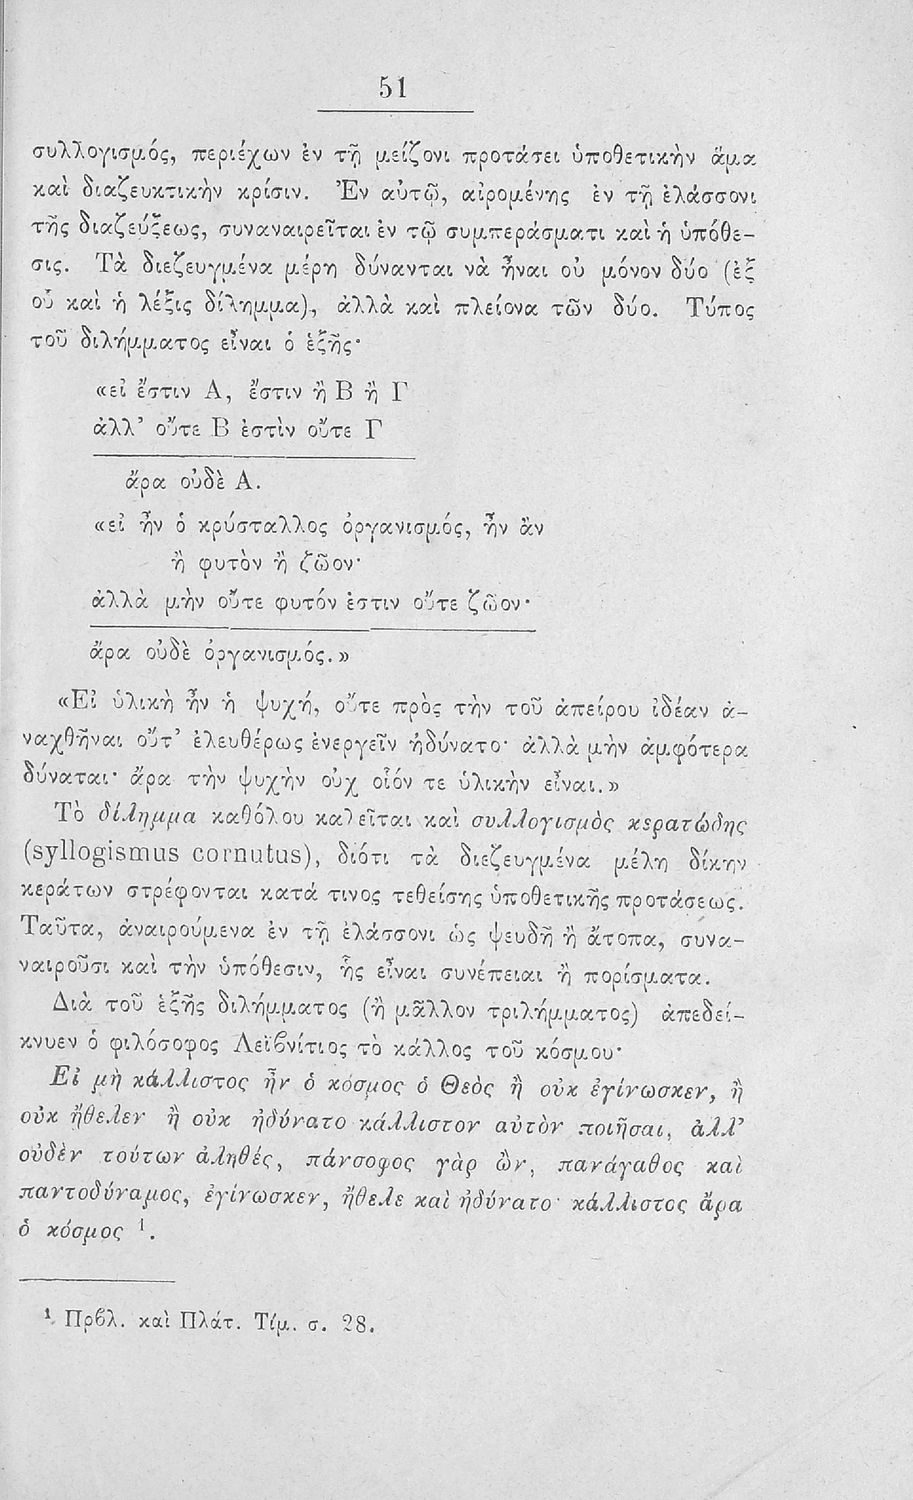 51
συλλογισμός, περιέχων ἐν τῇ μείζονι προτάσει ὑποθετικὴν ἅμα
καὶ διαζευκτικὴν κρίσιν. Ἐν αὐτῷ, αἰρομένης ἐν τῇ ἐλάσσονι
τῆς διαζεύξεως, συναναιρεῖται ἐν τῷ συμπεράσματι καὶ ἡ ὑπόθε-
σις. Τὰ διεζευγμένα μέρη δύνανται νὰ ἦναι οὐ μόνον δύο (ἐξ
οὗ καὶ ἡ λέξις δίλημμα), ἀλλὰ καὶ πλείονα τῶν δύο. Τύπος
τοῦ διλήμματος εἶναι ὁ ἑξῆς·
«εἰ ἔστιν Α, ἔστιν ἢ Β ἢ Γ
ἀλλ’ οὔτε Β ἐστὶν οὔτε Γ
ἄρα οὐδὲ Α.
«εἰ ἦν ὁ κρύσταλλος ὀργανισμός, ἦν ἂν
ἢ φυτὸν ἢ ζῶον·
ἀλλὰ μὴν οὔτε φυτόν ἐστιν οὔτε ζῶον·
ἄρα οὐδὲ ὀργανισμός.»
«Εἰ ὑλικὴ ἦν ἡ ψυχή, οὔτε πρὸς τὴν τοῦ ἀπείρου ἰδέαν ἀ-
ναχθῆναι οὔτ’ ἐλευθέρως ἐνεργεῖν ἠδύνατο· ἀλλὰ μὴν ἀμφότερα
δύναται· ἄρα τὴν ψυχὴν οὐχ οἷόν τε ὑλικὴν εἶναι.»
Τὸ δίλημμα καθόλου καλεῖται καὶ συλλογισμὸς κερατώδης
(syllogismus cornutus), διότι τὰ διεζευγμένα μέλη δίκην
κεράτων στρέφονται κατά τινος τεθείσης ὑποθετικῆς προτάσεως.
Ταῦτα, ἀναιρούμενα ἐν τῇ ἐλάσσονι ὡς ψευδῆ ἢ ἄτοπα, συνα-
ναιροῦσι καὶ τὴν ὑπόθεσιν, ἧς εἶναι συνέπειαι ἢ πορίσματα.
Διὰ τοῦ ἑξῆς διλήμματος (ἢ μᾶλλον τριλήμματος) ἀπεδεί-
κνυεν ὁ φιλόσοφος Λεϊβνίτιος τὸ κάλλος τοῦ κόσμου·
Εἰ μὴ κάλλιστος ἦν ὁ κόσμος ὁ Θεὸς ἢ οὐκ ἐγίνωσκεν, ἢ
οὐκ ἤθελεν ἢ οὐκ ἠδύνατο κάλλιστον αὐτὸν ποιῆσαι, ἀλλ’
οὐδὲν τούτων ἀληθές, πάνσοφος γὰρ ὢν, πανάγαθος καὶ
παντοδύναμος, ἐγίνωσκεν, ἤθελε καὶ ἠδύνατο· κάλλιστος ἄρα
ὁ κόσμος ¹.
¹ Πρβλ. καὶ Πλάτ. Τίμ. σ. 28.